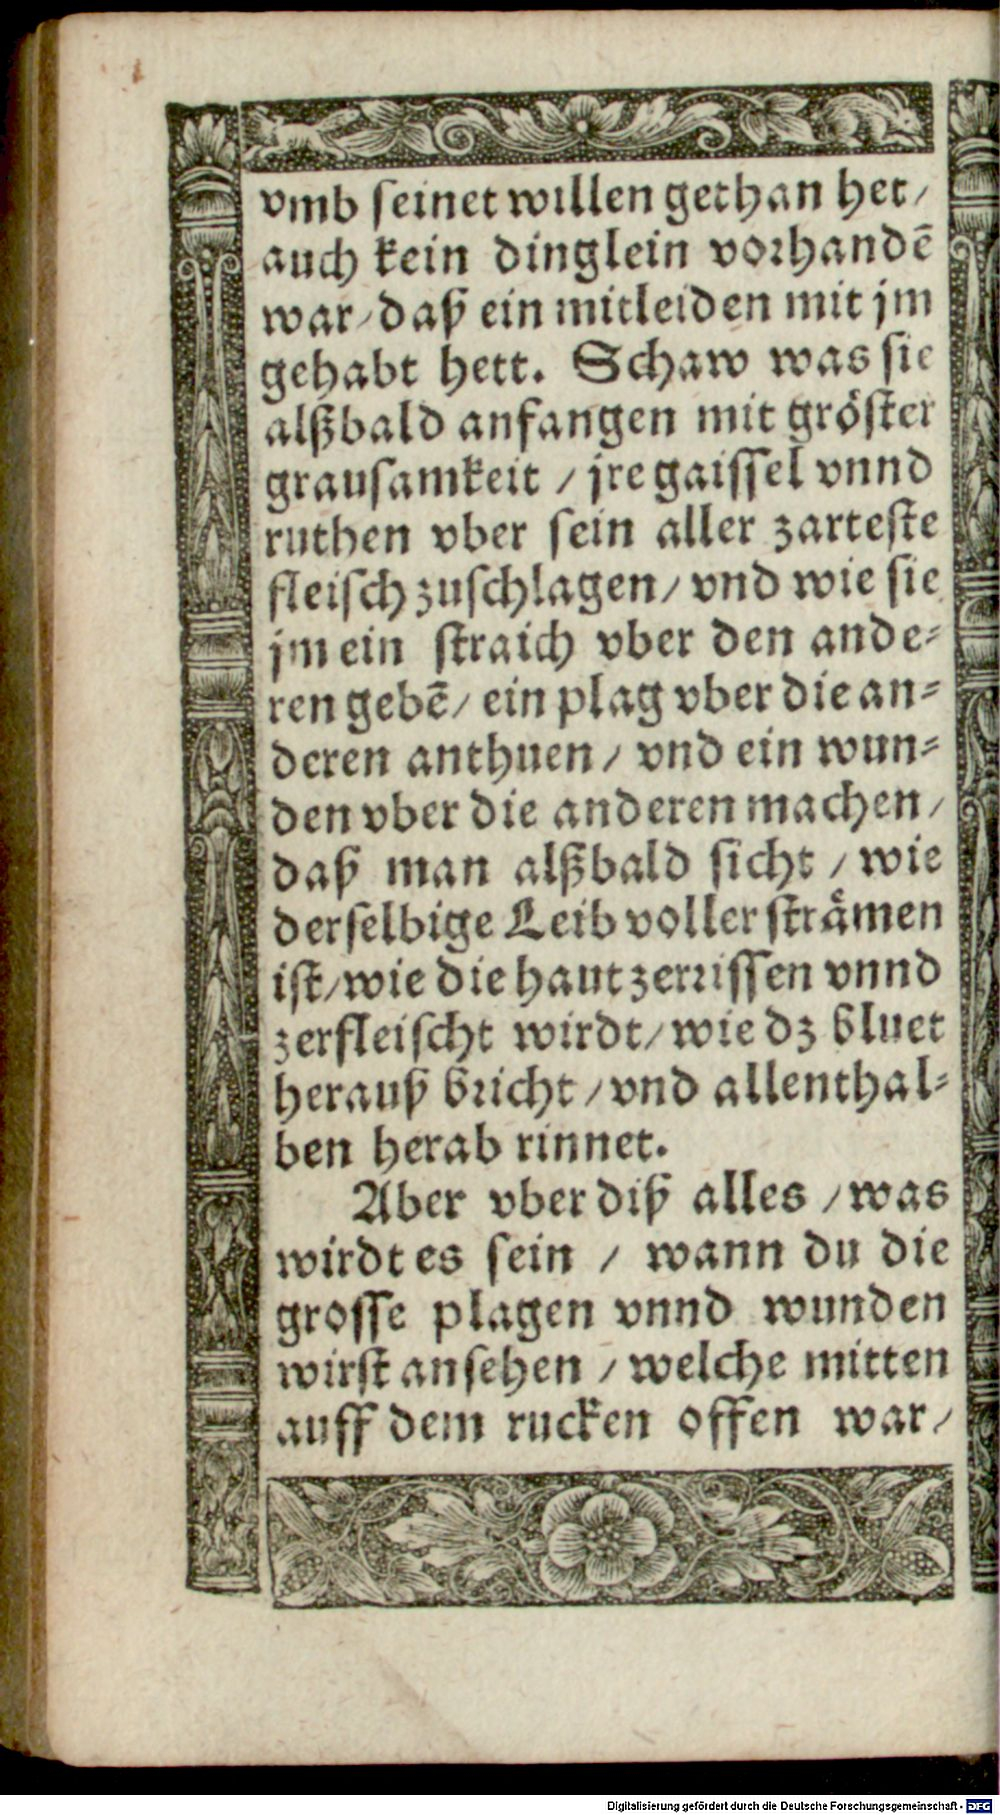 vmb seinet willen gethan het/
auch kein dinglein vorhandē
war/daß ein mitleiden mit jm
gehabt hett. Schaw was sie
alßbald anfangen mit gröster
grausamkeit / jre gaissel vnnd
ruthen vber sein aller zarteste
fleisch zuschlagen/ vnd wie sie
jm ein straich vber den ande-
ren gebē/ ein plag vber die an-
deren anthuen / vnd ein wun-
den vber die anderen machen/
daß man alßbald sicht / wie
derselbige Leib voller strämen
ist/wie die haut zerrissen vnnd
zerfleischt wirdt/wie dz bluet
herauß bricht /vnd allenthal-
ben herab rinnet.
Aber vber diß alles /was
wirdt es sein / wann du die
grosse plagen vnnd wunden
wirst ansehen / welche mitten
auff dem rucken offen war/
Digitalisierung gefördert durch die Deutsche Forschungsgemeinschaft - DFG